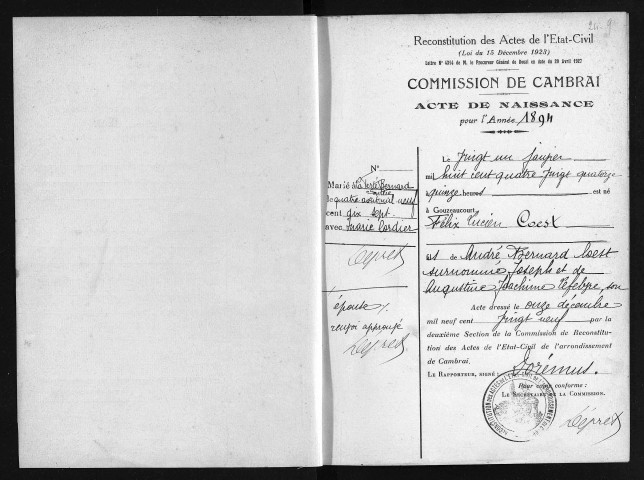 Reconstitution des Actes de l'Etat-Civil
(Loi du 15 Décembre 1923)
Lettre N° 4314 de M. le Procureur Général de Douai en date du 29 Avril 1927
COMMISSION DE CAMBRAI
ACTE DE NAISSANCE
pour l'Année 1894
Le vingt un janvier
mil huit cent quatre vingt quatorze
quinze heures est né
à Gouzeaucourt,
Félix Lucien Coest
fils de André Bernard Coest
surnommé Joseph et de
Augustine Joachime Lefebvre, son
Acte dressé le onze décembre
mil neuf cent vingt neuf par la
deuxième Section de la Commission de Reconstitu-
tion des Actes de l'Etat-Civil de l'arrondissement
de Cambrai.
LE RAPPORTEUR, SIGNÉ : Dorémus.
Pour copie conforme :
LE SECRÉTAIRE DE LA COMMISSION.
Lépret
N°
Marié à la Ferté Bernard
le quatre août mil neuf
cent dix sept
avec Marie Cordier
Lépret
épouse ./.
renvoi approuvé
Lépret